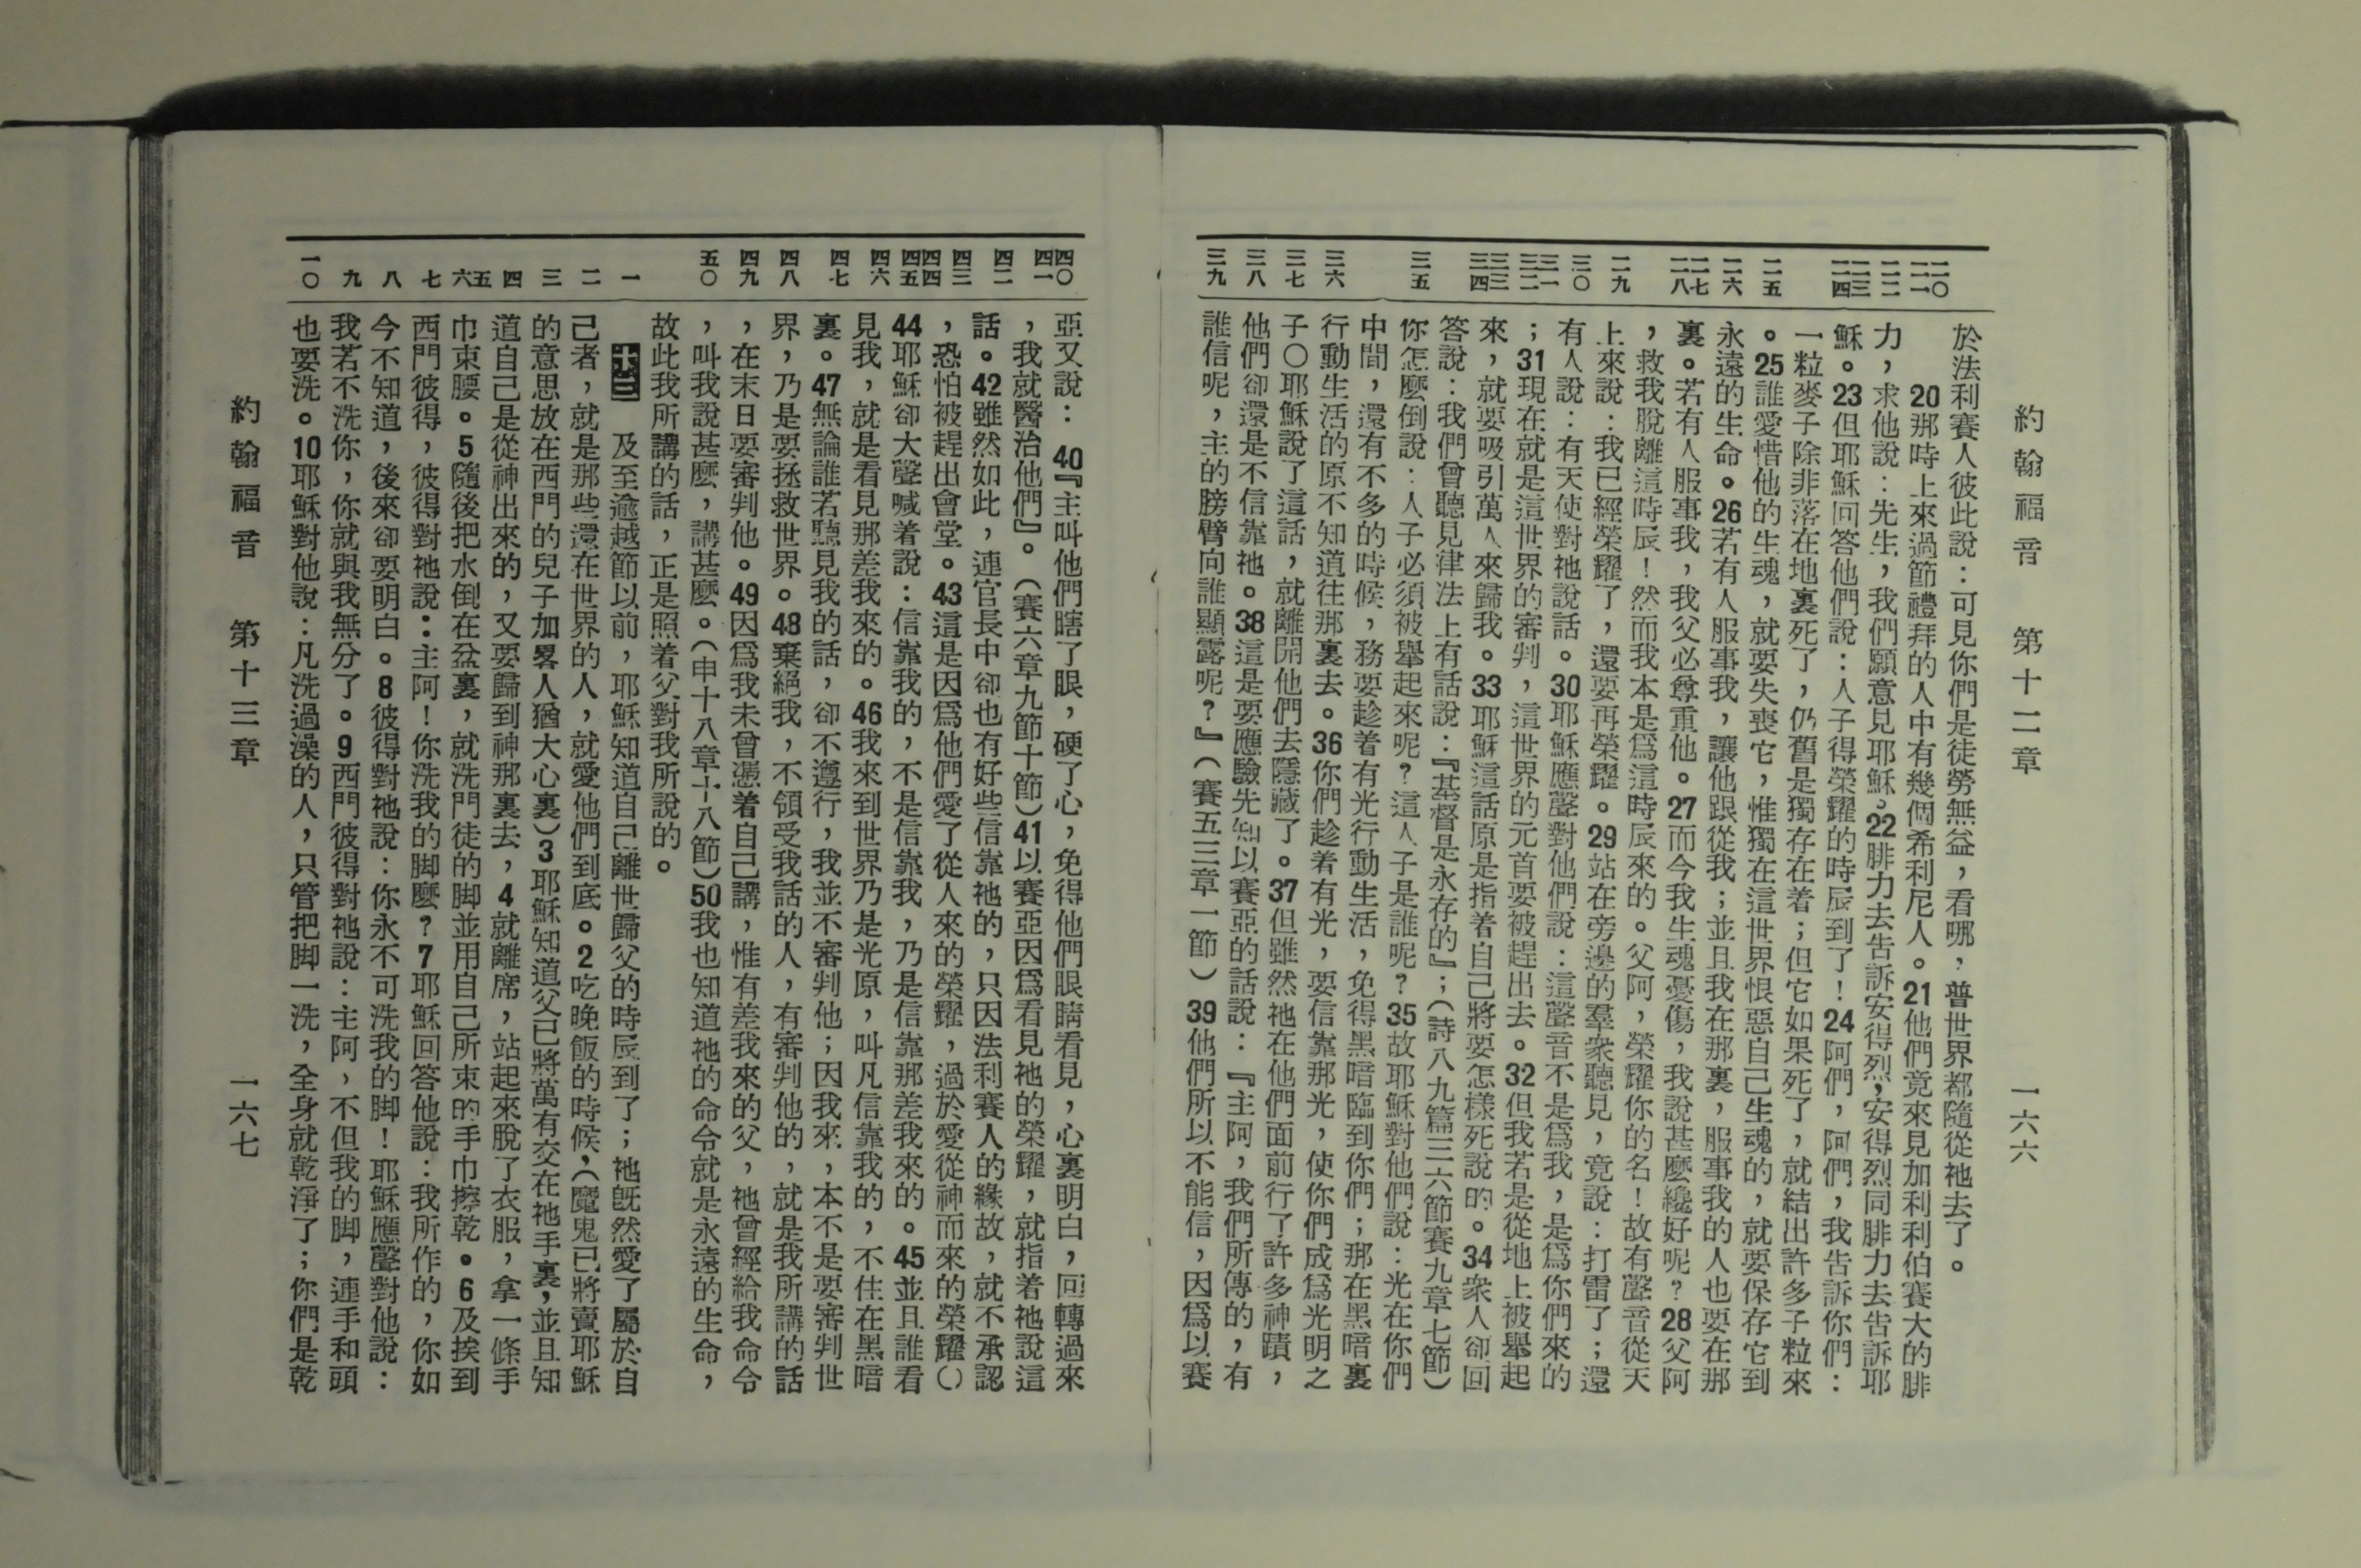 約翰福音　第十二章　一六六
二〇
二一
二二
二三
二四
二五
二六
二七
二八
二九
三〇
三一
三二
三三
三四
三五
三六
三七
三八
三九
於法利賽人彼此說：可見你們是徒勞無益，看哪，普世界都隨從祂去了。
20那時上來過節禮拜的人中有幾個希利尼人。21他們竟來見加利利伯賽大的腓
力，求他說：先生，我們願意見耶穌。22腓力去告訴安得烈，安得烈同腓力去告訴耶
穌。23但耶穌回答他們說：人子得榮耀的時辰到了！24阿們，阿們，我告訴你們：
一粒麥子除非落在地裏死了，仍舊是獨存在着；但它如果死了，就結出許多子粒來
。25誰愛惜他的生魂，就要失喪它，惟獨在這世界恨惡自己生魂的，就要保存它到
永遠的生命。26若有人服事我，讓他跟從我；並且我在那裏，服事我的人也要在那
裏。若有人服事我，我父必尊重他。27而今我生魂憂傷，我說甚麽纔好呢？28父阿
，救我脫離這時辰！然而我本是爲這時辰來的。父阿，榮耀你的名！故有聲音從天
上來說：我已經榮耀了，還要再榮耀。29站在旁邊的羣衆聽見，竟說：打雷了；還
有人說：有天使對祂說話。30耶穌應聲對他們說：這聲音不是爲我，是爲你們來的
；31現在就是這世界的審判，這世界的元首要被趕出去。32但我若是從地上被舉起
來，就要吸引萬人來歸我。33耶穌這話原是指着自己將要怎樣死說的。34衆人卻回
答說：我們曾聽見律法上有話說：『基督是永存的』；（詩八九篇三六節賽九章七節）
你怎麽倒說：人子必須被舉起來呢？這人子是誰呢？35故耶穌對他們說：光在你們
中間，還有不多的時候，務要趁着有光行動生活，免得黑暗臨到你們；那在黑暗裏
行動生活的原不知道往那裏去。36你們趁着有光，要信靠那光，使你們成爲光明之
子〇耶穌說了這話，就離開他們去隱藏了。37但雖然祂在他們面前行了許多神蹟，
他們卻還是不信靠祂。38這是要應驗先知以賽亞的話說：『主阿，我們所傳的，有
誰信呢，主的膀臂向誰顯露呢？』（賽五三章一節）39他們所以不能信，因爲以賽
四〇
四一
四二
四三
四四
四五
四六
四七
四八
四九
五〇
一
二
三
四
五
六
七
八
九
一〇
亞又說：40『主叫他們瞎了眼，硬了心，免得他們眼睛看見，心裏明白，回轉過來
，我就醫治他們』。（賽六章九節十節）41以賽亞因爲看見祂的榮耀，就指着祂說這
話。42雖然如此，連官長中卻也有好些信靠祂的，只因法利賽人的緣故，就不承認
，恐怕被趕出會堂。43這是因爲他們愛了從人來的榮耀，過於愛從神而來的榮耀〇
44耶穌卻大聲喊着說：信靠我的，不是信靠我，乃是信靠那差我來的。45並且誰看
見我，就是看見那差我來的。46我來到世界乃是光原，叫凡信靠我的，不住在黑暗
裏。47無論誰若聽見我的話，卻不遵行，我並不審判他；因我來，本不是要審判世
界，乃是要拯救世界。48棄絕我，不領受我話的人，有審判他的，就是我所講的話
，在末日要審判他。49因爲我未曾憑着自己講，惟有差我來的父，祂曾經給我命令
，叫我說甚麽，講甚麽。（申十八章十八節）50我也知道祂的命令就是永遠的生命，
故此我所講的話，正是照着父對我所說的。
十三　及至逾越節以前，耶穌知道自己離世歸父的時辰到了；祂旣然愛了屬於自
己者，就是那些還在世界的人，就愛他們到底。2吃晚飯的時候，（魔鬼已將賣耶穌
的意思放在西門的兒子加畧人猶大心裏）3耶穌知道父已將萬有交在祂手裏，並且知
道自己是從神出來的，又要歸到神那裏去，4就離席，站起來脫了衣服，拿一條手
巾束腰。5隨後把水倒在盆裏，就洗門徒的脚並用自己所束的手巾擦乾。6及挨到
西門彼得，彼得對祂說：主阿！你洗我的脚麽？7耶穌回答他說：我所作的，你如
今不知道，後來卻要明白。8彼得對祂說：你永不可洗我的脚！耶穌應聲對他說：
我若不洗你，你就與我無分了。9西門彼得對祂說：主阿，不但我的脚，連手和頭
也要洗。10耶穌對他說：凡洗過澡的人，只管把脚一洗，全身就乾淨了；你們是乾
約翰福音　第十三章　一六七